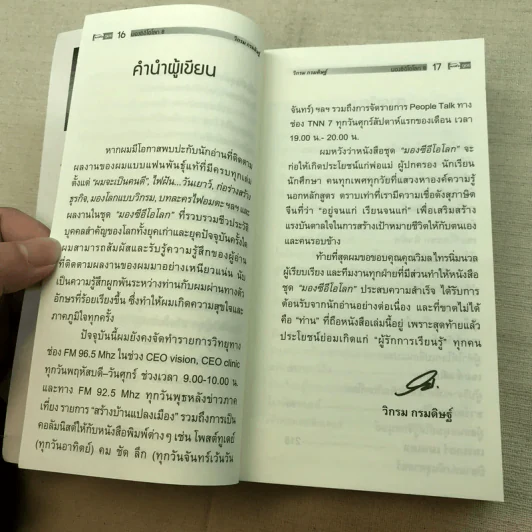 16
มองซีอีโอโลก 8
วิกรม กรมดิษฐ์
คำนำผู้เขียน
หากผมมีโอกาสพบปะกับนักอ่านที่ติดตาม
ผลงานของผมแบบแฟนพันธุ์แท้ที่มีครบทุกเล่ม
ตั้งแต่ "ผมจะเป็นคนดี", ไฟฝัน...วันเยาว์, ก่อร่างสร้าง
ธุรกิจ, มองโลกแบบวิกรม, บทละครไฟอมตะ ฯลฯ และ
ผลงานในชุด "มองซีอีโอโลก" ที่รวบรวมชีวประวัติ
บุคคลสำคัญของโลกทั้งยุคเก่าและยุคปัจจุบันครั้งใด
ผมสามารถสัมผัสและรับรู้ความรู้สึกของผู้อ่าน
ที่ติดตามผลงานของผมมาอย่างเหนียวแน่น นับ
เป็นความรู้สึกผูกพันระหว่างท่านกับผมผ่านทางตัว
อักษรที่ร้อยเรียงขึ้น ซึ่งทำให้ผมเกิดความสุขใจและ
ภาคภูมิใจทุกครั้ง
ปัจจุบันนี้ผมยังคงจัดทำรายการวิทยุทาง
ช่อง FM 96.5 Mhz ในช่วง CEO vision, CEO clinic
ทุกวันพฤหัสบดี-วันศุกร์ ช่วงเวลา 9.00-10.00 น.
และทาง FM 92.5 Mhz ทุกวันพุธหลังข่าวภาค
เที่ยง รายการ "สร้างบ้านแปลงเมือง" รวมถึงการเป็น
คอลัมนิสต์ให้กับหนังสือพิมพ์ต่างๆ เช่น โพสต์ทูเดย์
(ทุกวันอาทิตย์) คม ชัด ลึก (ทุกวันจันทร์เว้นวัน
วิกรม กรมดิษฐ์
มองซีอีโอโลก 8
17
จันทร์) ฯลฯ รวมถึงการจัดรายการ People Talk ทาง
ช่อง TNN 7 ทุกวันศุกร์สัปดาห์แรกของเดือน เวลา
19.00 น.- 20.00 น.
ผมหวังว่าหนังสือชุด "มองซีอีโอโลก" จะ
ก่อให้เกิดประโยชน์แก่พ่อแม่ ผู้ปกครอง นักเรียน
นักศึกษา คนทุกเพศทุกวัยที่แสวงหาองค์ความรู้
นอกหลักสูตร ตราบเท่าที่เรามีความเชื่อดังสุภาษิต
จีนที่ว่า "อยู่จนแก่ เรียนจนแก่" เพื่อเสริมสร้าง
แรงบันดาลใจในการสร้างเป้าหมายชีวิตให้กับตนเอง
และคนรอบข้าง
ท้ายที่สุดผมขอขอบคุณคุณวิมล ไทรนิ่มนวล
ผู้เรียบเรียง และทีมงานทุกฝ่ายที่มีส่วนทำให้หนังสือ
ชุด "มองซีอีโอโลก" ประสบความสำเร็จ ได้รับการ
ต้อนรับจากนักอ่านอย่างต่อเนื่อง และที่ขาดไม่ได้
คือ "ท่าน" ที่ถือหนังสือเล่มนี้อยู่ เพราะสุดท้ายแล้ว
ประโยชน์ย่อมเกิดแก่ "ผู้รักการเรียนรู้" ทุกคน
วิกรม กรมดิษฐ์